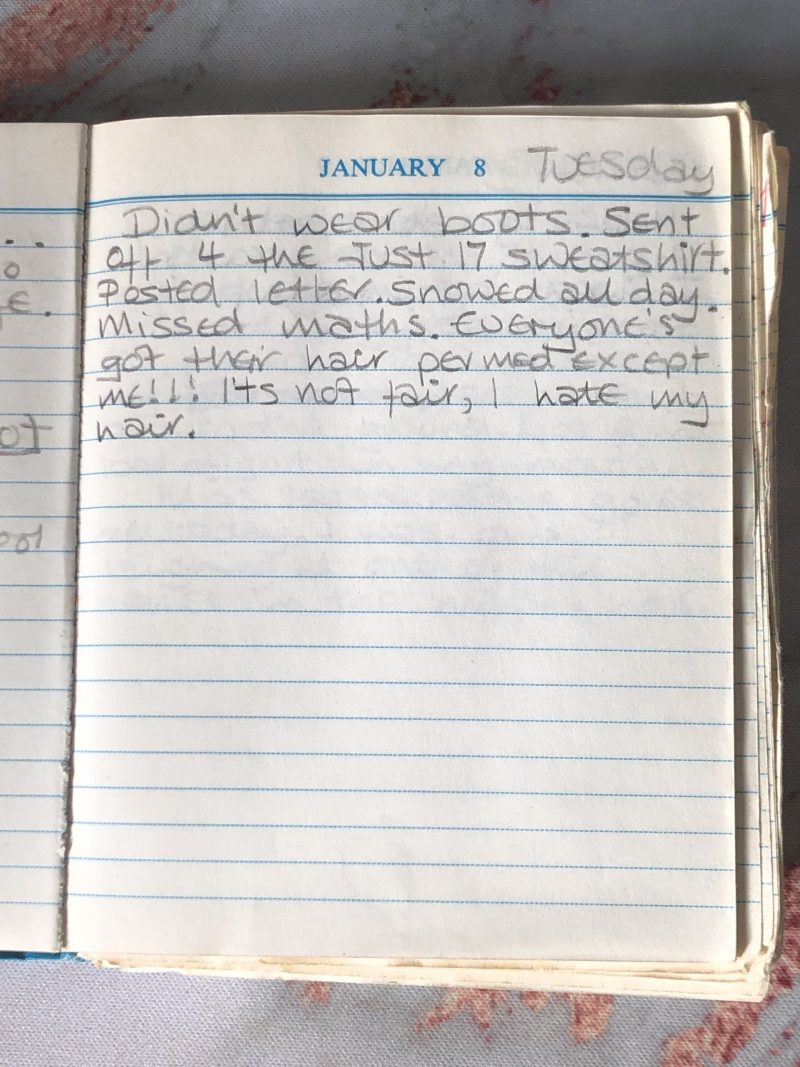 JANUARY 8 Tuesday
Didn't wear boots. Sent
off 4 the Just 17 sweatshirt.
Posted letter. Snowed all day.
Missed maths. Everyone's
got their hair permed except
me!!! It's not fair, I hate my
hair.